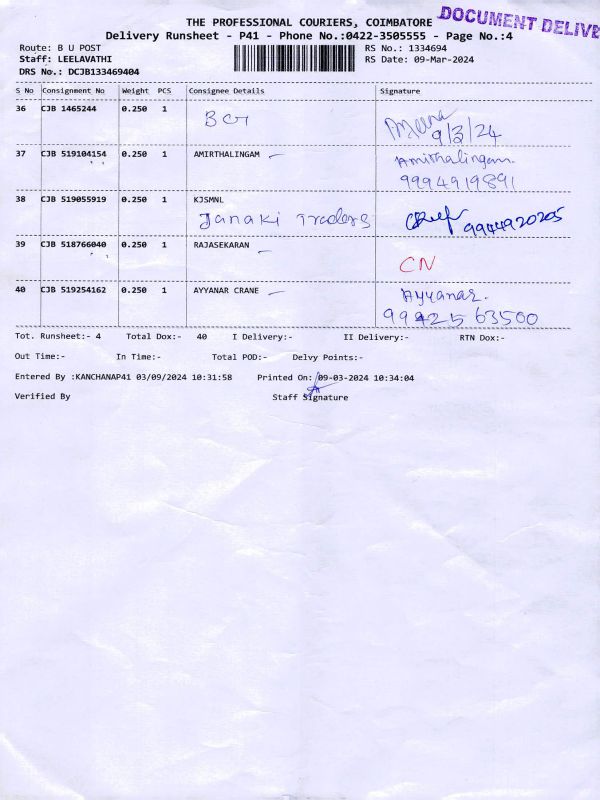 THE PROFESSIONAL COURIERS, COIMBATORE
DOCUMENT DELIVE
Delivery Runsheet - P41 - Phone No.:0422-3505555 - Page No.:4
Route: B U POST
RS No.: 1334694
Staff: LEELAVATHI
RS Date: 09-Mar-2024
DRS No.: DCJB133469404
S No Consignment No Weight PCS Consignee Details Signature
36 CJB 1465244 0.250 1
9/3/24
37 CJB 519104154 0.250 1 AMIRTHALINGAM Amirthalingam.
9994919891
38 CJB 519055919 0.250 1 KJSMNL
Janaki Traders 9944920205
39 CJB 518766040 0.250 1 RAJASEKARAN
CN
40 CJB 519254162 0.250 1 AYYANAR CRANE Ayyanar.
99425 63500
Tot. Runsheet:- 4 Total Dox:- 40 I Delivery:- II Delivery:- RTN Dox:-
Out Time:- In Time:- Total POD:- Delvy Points:-
Entered By :KANCHANAP41 03/09/2024 10:31:58 Printed On:09-03-2024 10:34:04
Verified By Staff Signature